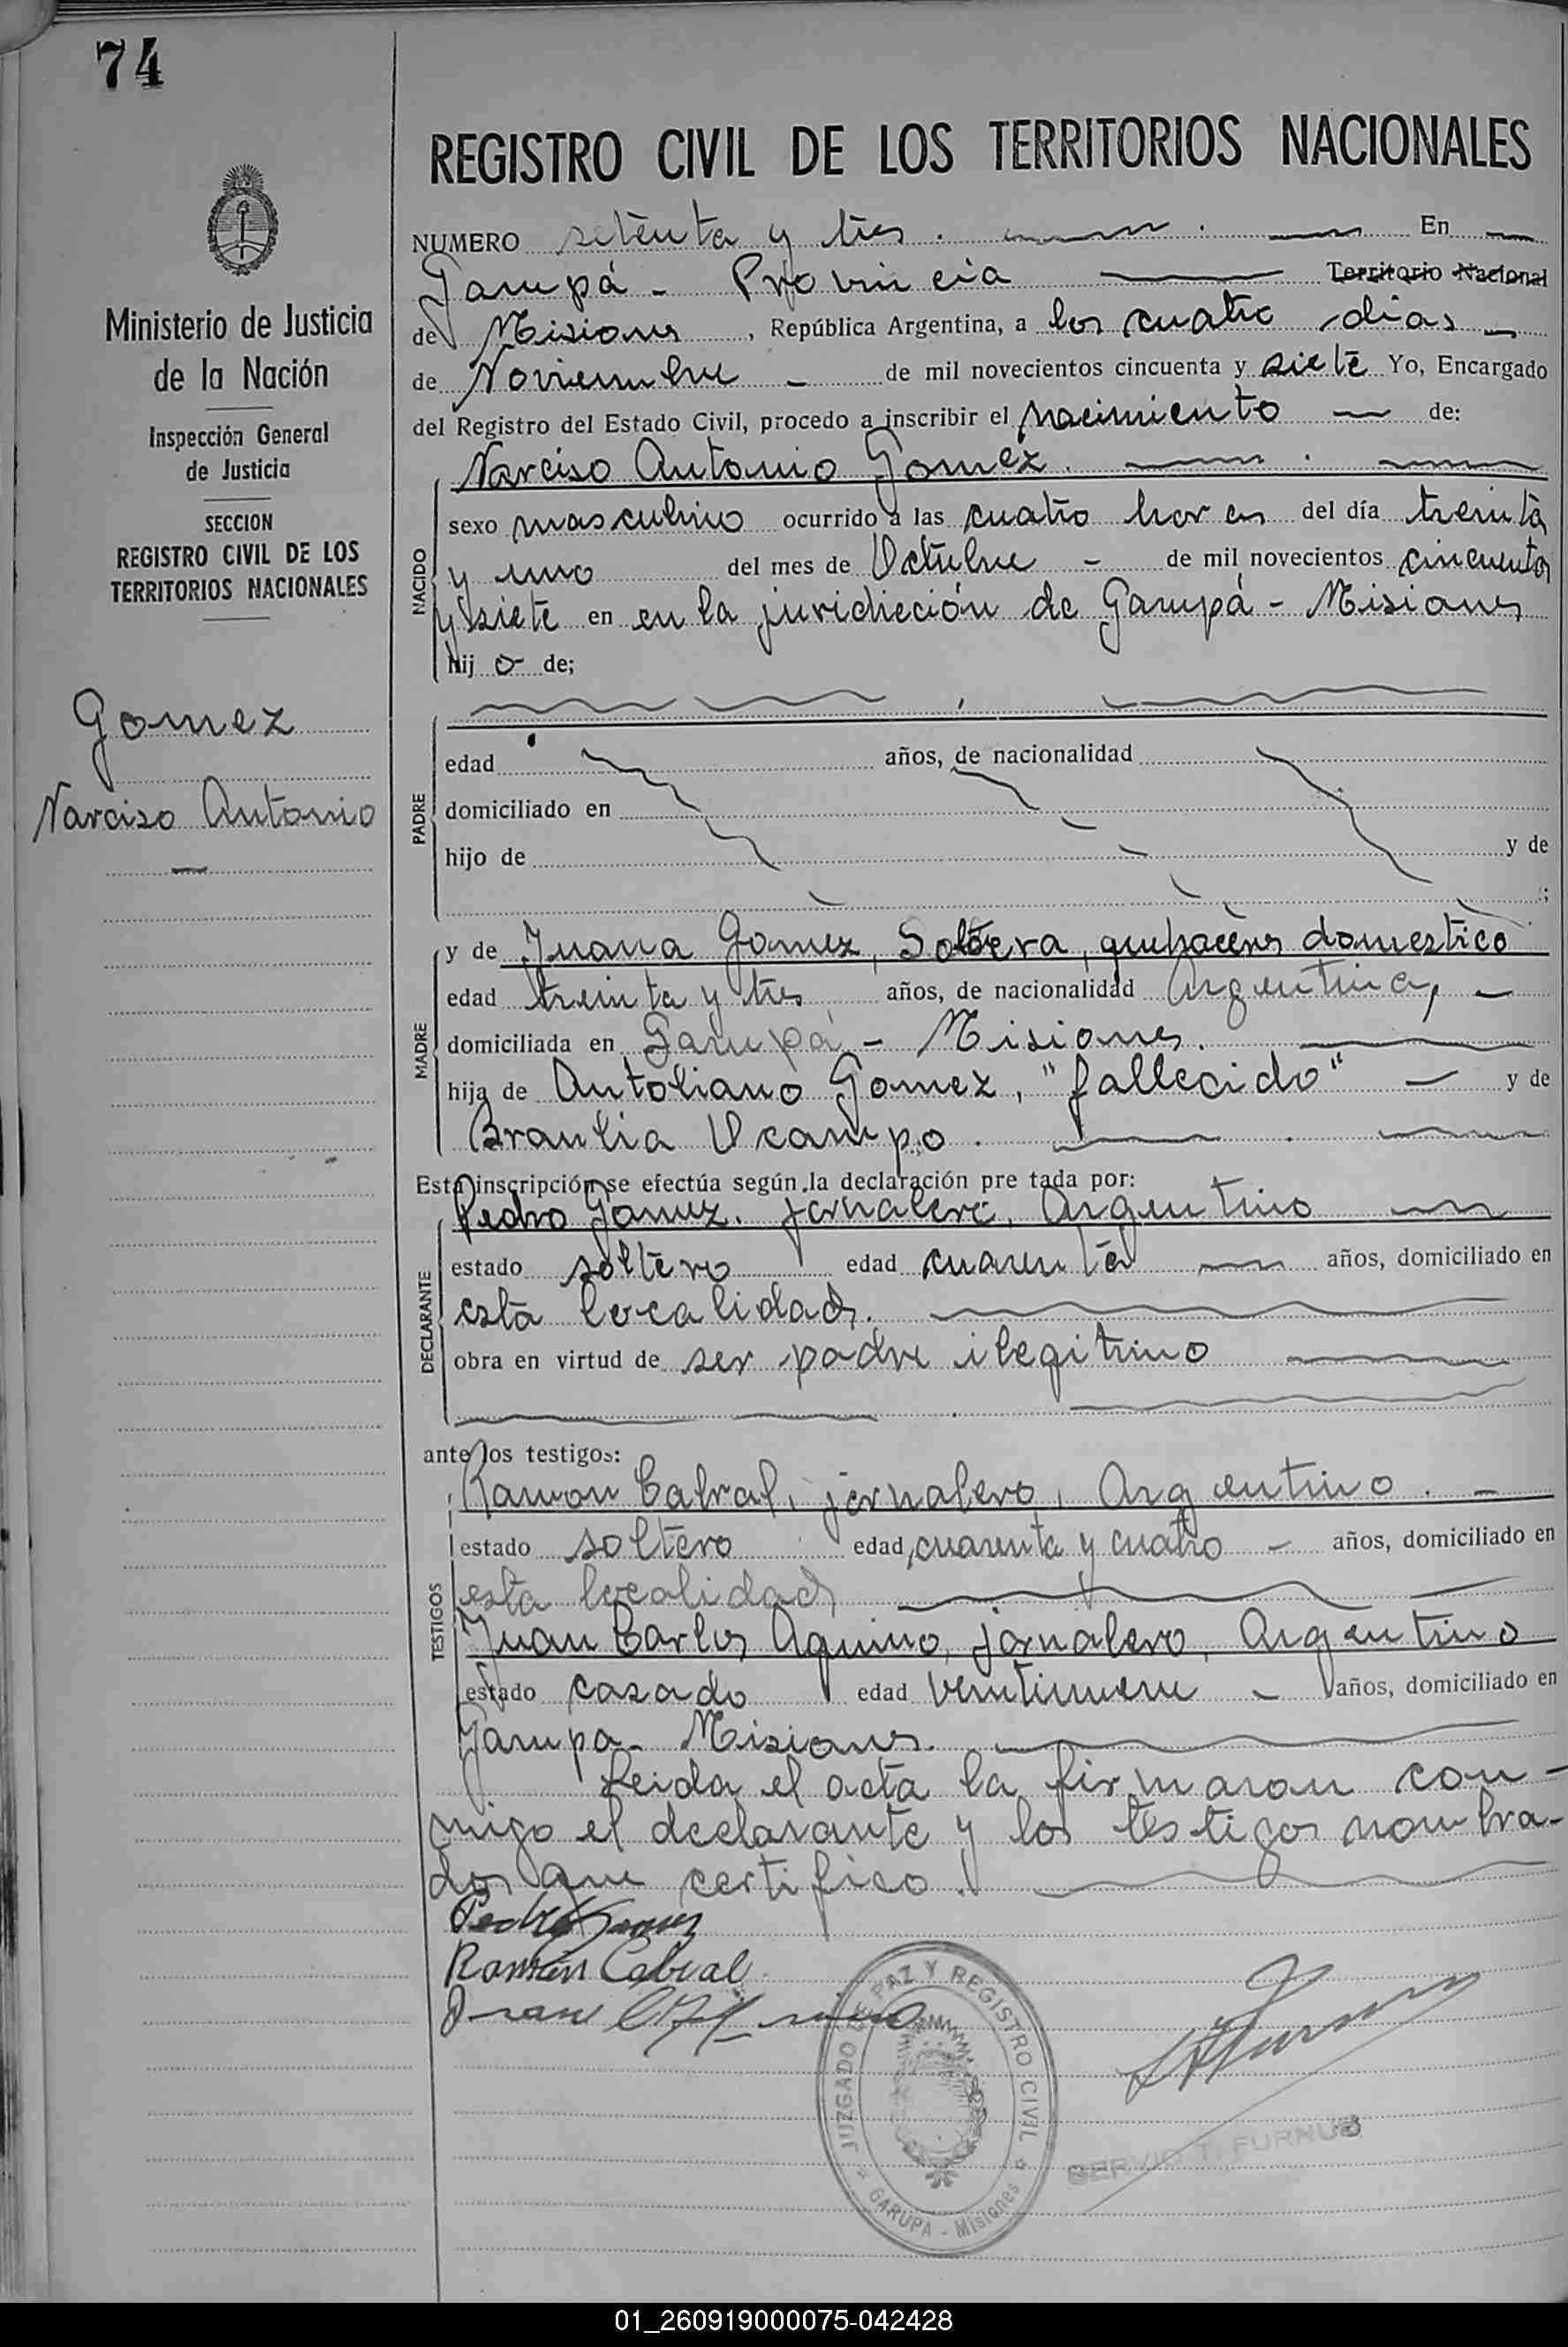 74
REGISTRO CIVIL DE LOS TERRITORIOS NACIONALES
Ministerio de Justicia
de la Nación
Inspección General
de Justicia
SECCION
REGISTRO CIVIL DE LOS
TERRITORIOS NACIONALES
Gomez
Narciso Antonio
NUMERO setenta y tres. En
Garupá - Provincia Territorio Nacional
de Misiones, República Argentina, a los cuatro dias
de Noviembre de mil novecientos cincuenta y siete Yo, Encargado
del Registro del Estado Civil, procedo a inscribir el nacimiento de:
NACIDO
Narciso Antonio Gomez.
sexo masculino ocurrido a las cuatro horas del día treinta
y uno del mes de Octubre de mil novecientos cincuenta
y siete en en la juridicción de Garupá - Misiones
hijo de;
PADRE
edad años, de nacionalidad
domiciliado en
hijo de y de
;
MADRE
y de Juana Gomez, Soltera, quehaceres domestico
edad treinta y tres años, de nacionalidad Argentina,
domiciliada en Garupá - Misiones.
hija de Antoliano Gomez, "fallecido" y de
Braulia Ocampo.
Esta inscripción se efectúa según la declaración pre tada por:
DECLARANTE
Pedro Gomez. jornalero, Argentino
estado soltero edad cuarenta años, domiciliado en
esta localidad.
obra en virtud de ser padre ilegitimo
ante los testigos:
TESTIGOS
Ramon Cabral, jornalero, Argentino.
estado soltero edad cuarenta y cuatro años, domiciliado en
esta localidad
Juan Carlos Aquino, jornalero, Argentino
estado casado edad veintinueve años, domiciliado en
Garupa - Misiones.
Leida el acta la firmaron con-
migo el declarante y los testigos nombra-
dos que certifico.
Pedro Gomez
Ramón Cabral
Juan
JUZGADO DE PAZ Y REGISTRO CIVIL
GARUPA - Misiones
SERVIO T. FURNUS
01_260919000075-042428